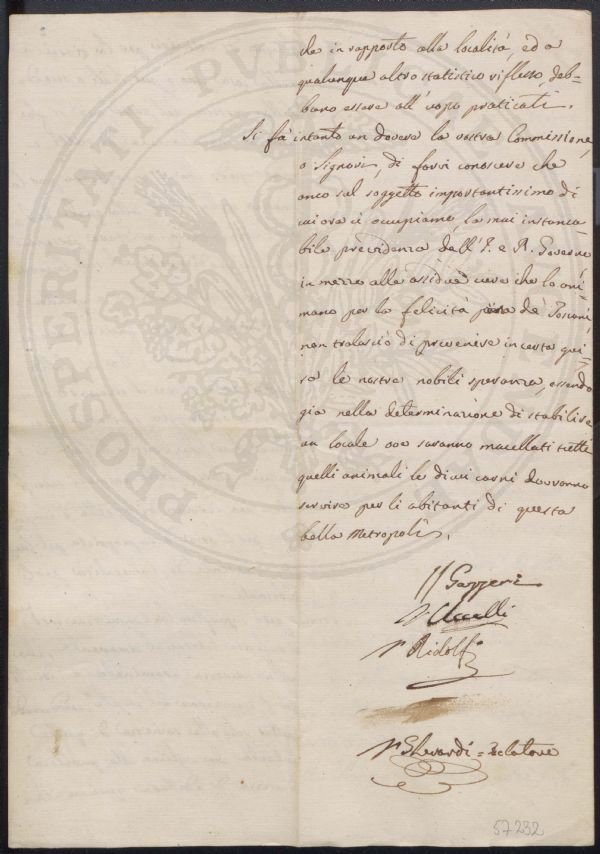 che in rapporto alla località, ed a
qualunque altro statistico riflesso, deb-
bano essere all'uopo praticati.
Si fà intanto un dovere la vostra Commissione,
o Signori, di farvi conoscere che
anco sul soggetto importantissimo di
cui ora ci occupiamo, la mai instanca-
bile previdenza dell'I. e R. Governo
in mezzo alle assidue cure che lo ani-
mano per la felicità de' Toscani,
non tralasciò di prevenire in certa gui-
sa le nostre nobili speranze, essendo
già nella determinazione di stabilire
un locale ove saranno macellati tutti
quelli animali le di cui carni dovranno
servire per li abitanti di questa
bella Metropoli.
Gazzeri
Uccelli
Ridolfi
= Relatore
57.232
PROSPERITATI PVBLICAE